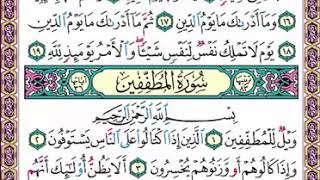 ١٦ وَمَا أَدْرَىٰكَ مَا يَوْمُ الدِّينِ ١٧ ثُمَّ مَا أَدْرَىٰكَ مَا يَوْمُ الدِّينِ
١٨ يَوْمَ لَا تَمْلِكُ نَفْسٌ لِنَفْسٍ شَيْئًا وَالْأَمْرُ يَوْمَئِذٍ لِلَّهِ ١٩
سُورَةُ الْمُطَفِّفِينَ
بِسْمِ اللَّهِ الرَّحْمَٰنِ الرَّحِيمِ
وَيْلٌ لِلْمُطَفِّفِينَ ١ الَّذِينَ إِذَا اكْتَالُوا عَلَى النَّاسِ يَسْتَوْفُونَ ٢
وَإِذَا كَالُوهُمْ أَو وَّزَنُوهُمْ يُخْسِرُونَ ٣ أَلَا يَظُنُّ أُولَٰئِكَ أَنَّهُم